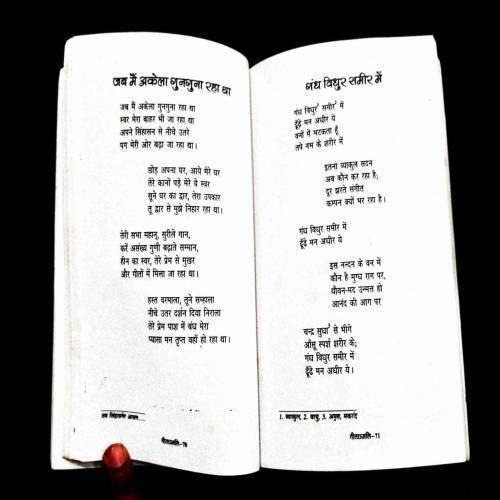 जब मैं अकेला गुनगुना रहा था
जब मैं अकेला गुनगुना रहा था
स्वर मेरा बाहर भी जा रहा था
अपने सिंहासन से नीचे उतरे
पग मेरी ओर बढ़ा जा रहा था।
छोड़ अपना घर, आये मेरे घर
तेरे कानों पड़े मेरे ये स्वर
सूने घर का द्वार, तेरा उपकार
तू द्वार से मुझे निहार रहा था।
तेरी सभा महान्, सुरीले गान,
करें असंख्य गुणी बढ़ाते सम्मान,
हीन का स्वर, तेरे प्रेम से मुखर
और गीतों में मिला जा रहा था।
हस्त वरमाला, तूने सम्हाला
नीचे उतर दर्शन दिया निराला
तेरे प्रेम पाश में बंध मेरा
प्यासा मन तृप्त वहाँ हो रहा था।
तव सिंहासनेर आसन
गीताञ्जलि-70
गंध विधुर समीर में
गंध विधुर¹ समीर² में
ढूँढ़े मन अधीर ये
वनों में भटकता हूँ
तपे नभ के शरीर में
इतना व्याकुल सदन
अब कौन कर रहा है;
दूर झरते संगीत
कम्पन क्यों भर रहा है।
गंध विधुर समीर में
ढूँढ़े मन अधीर ये
इस नन्दन के वन में
कौन है मुग्ध राग पर,
यौवन-मद उन्मत्त हो
आनंद की आग पर
चन्द्र सुधा³ से भीगे
आँसू स्पर्श शरीर के;
गंध विधुर समीर में
ढूँढ़े मन अधीर ये।
1. व्याकुल, 2. वायु, 3. अमृत, मकरंद
गीताञ्जलि-71